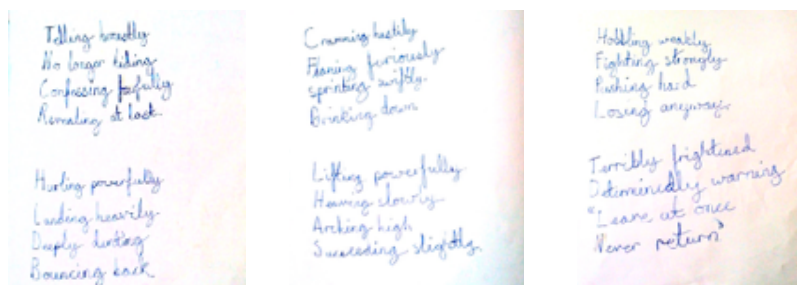 Telling
No longer hiding
Confessing
at last.
Hurling powerfully
Landing heavily
Deeply
Bouncing back
Cramming hastily
furiously
sprinting swiftly.
Drinking down.
Lifting powerfully
Heaving slowly
Arching high
Succeeding slightly.
Hobbling weakly
Fighting strongly
Pushing hard
Losing anyway.
Terribly frightined
warning
"Leave at once
Never return"